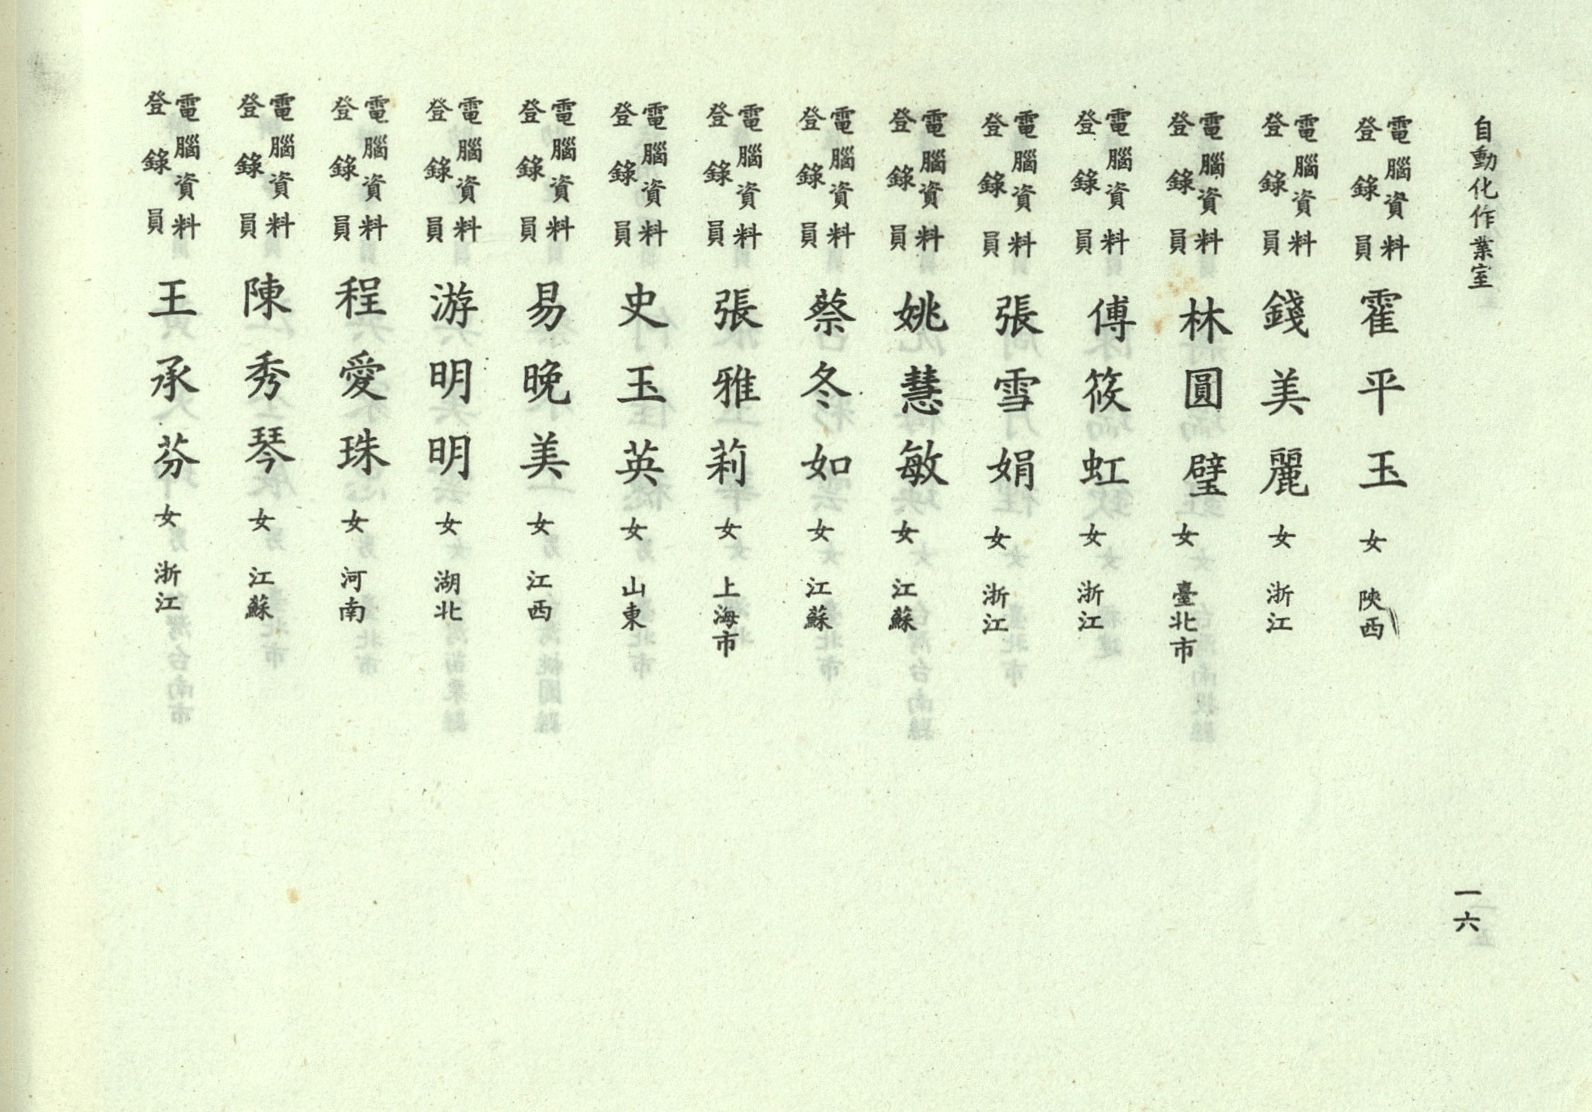 自動化作業室
電腦資料登錄員 霍平玉 女 陝西
電腦資料登錄員 錢美麗 女 浙江
電腦資料登錄員 林圓璧 女 臺北市
電腦資料登錄員 傅筱虹 女 浙江
電腦資料登錄員 張雪娟 女 浙江
電腦資料登錄員 姚慧敏 女 江蘇
電腦資料登錄員 蔡冬如 女 江蘇
電腦資料登錄員 張雅莉 女 上海市
電腦資料登錄員 史玉英 女 山東
電腦資料登錄員 易晚美 女 江西
電腦資料登錄員 游明明 女 湖北
電腦資料登錄員 程愛珠 女 河南
電腦資料登錄員 陳秀琴 女 江蘇
電腦資料登錄員 王承芬 女 浙江
一六